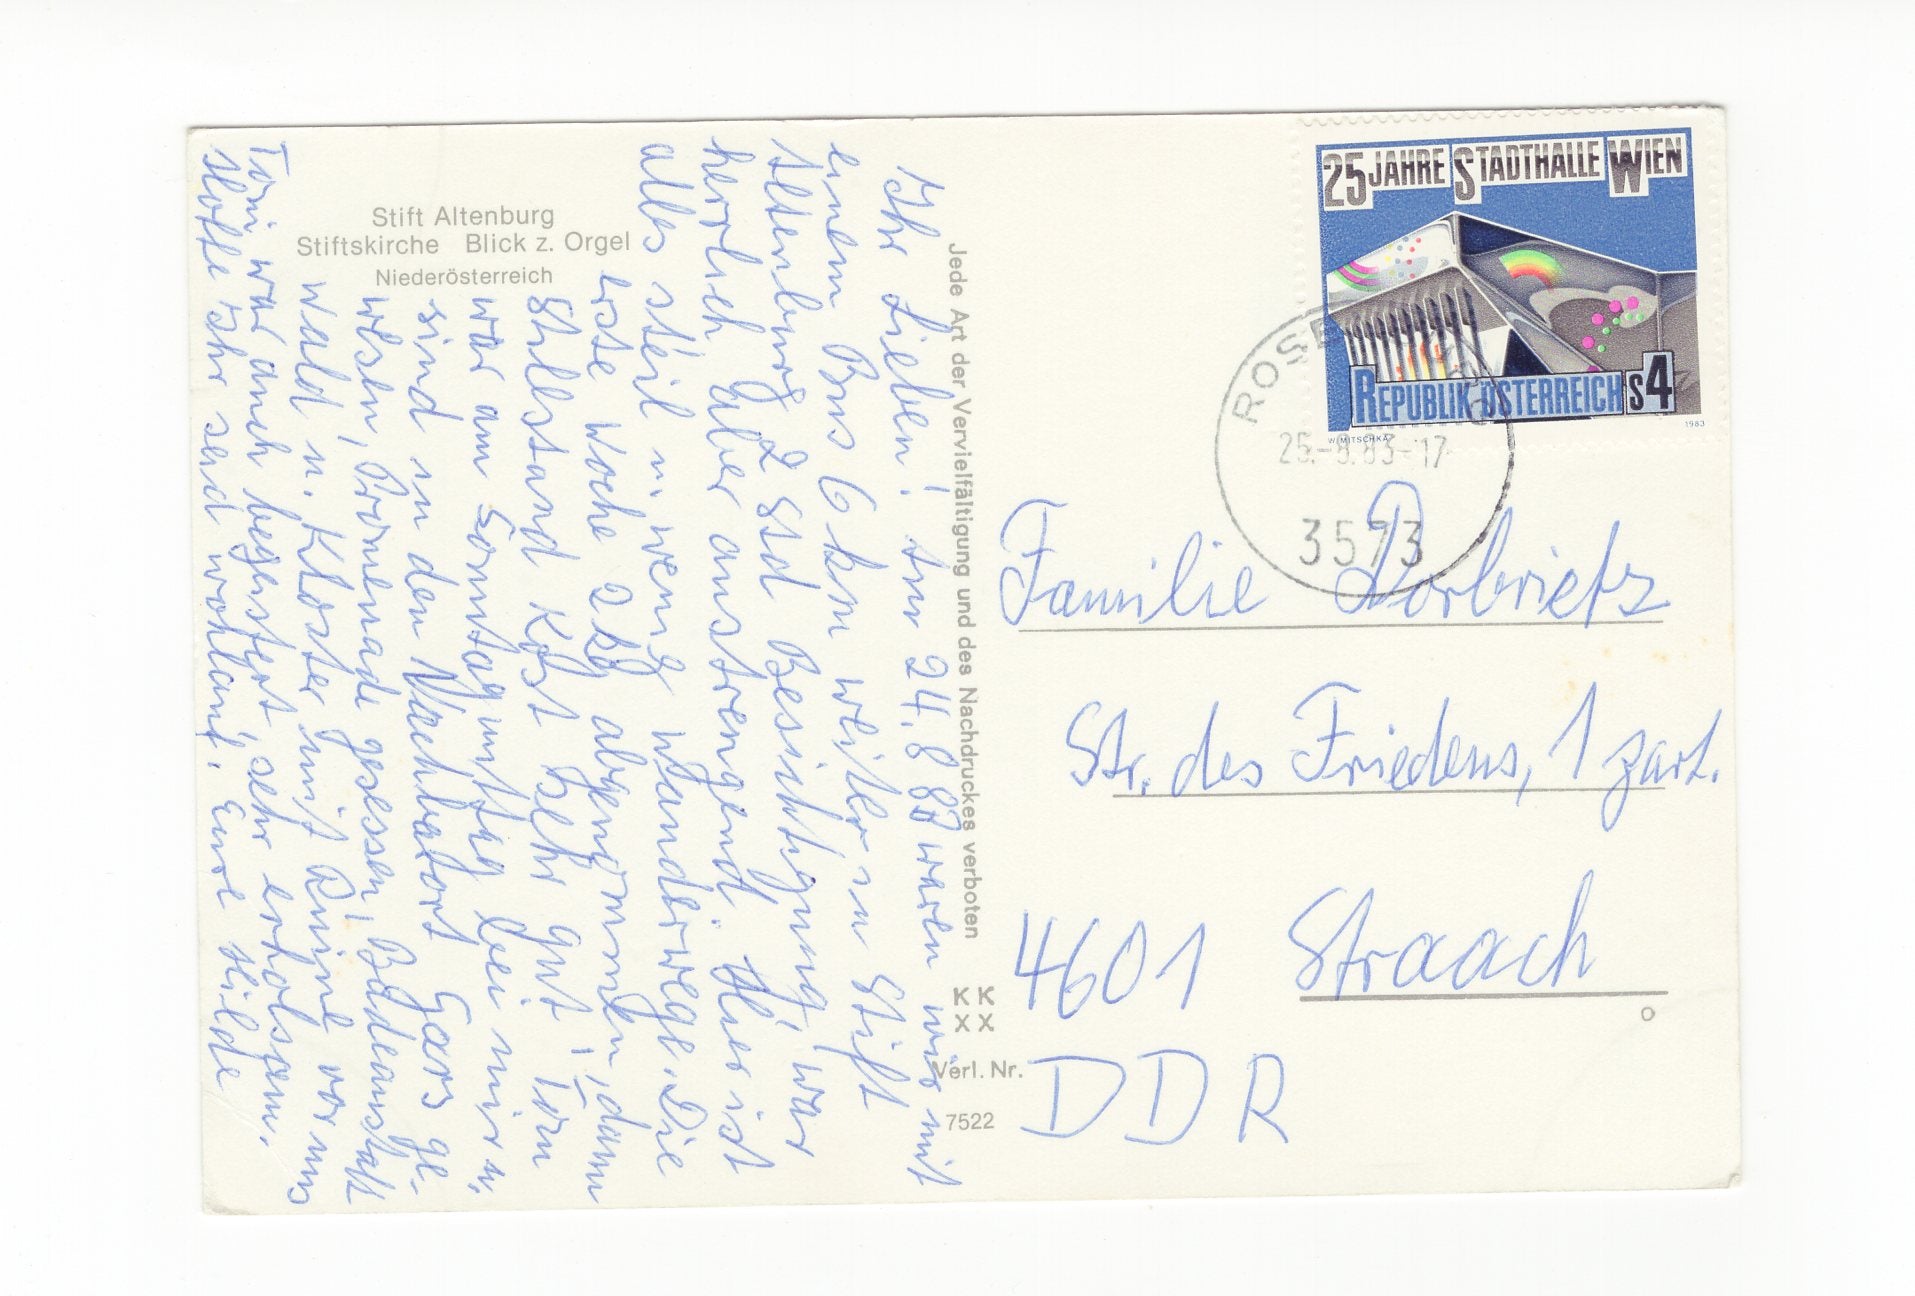 Stift Altenburg
Stiftskirche Blick z. Orgel
Niederösterreich
Ihr Lieben! Am 24.8.83 waren wir mit
einem Bus 6 km weiter in Stift
Altenburg 2 Std Besichtigung war
herrlich aber anstrengend. Hier ist
alles steil u. wenig Wanderwege. Die
erste Woche 2 kg abgenommen, dann
Stillstand Kost sehr gut, Toni
war am Sonntagmittag bei mir u.
sind in den Nachbarort Gars ge-
wesen, Promenade gesessen, Badeanstalt
Wald u. Kloster mit Ruine vor uns
Toni war auch begeistert, sehr erholsam.
Hoffe Ihr seid wohlauf. Eure Hilde
Jede Art der Vervielfältigung und des Nachdruckes verboten
KK
XX
Verl. Nr.
7522
25 JAHRE STADTHALLE WIEN
REPUBLIK ÖSTERREICH S4
W. MITSCHKA
1983
25.-8.83-17
3573
Familie Dorbrietz
Str. des Friedens, 1
4601 Straach
DDR